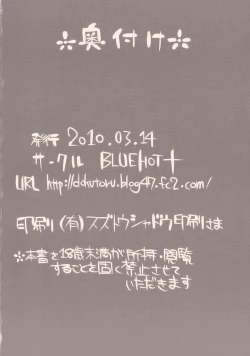 ☆奥付け☆
発行 2010.03.14
サークル BLUEHOT+
URL http://ddhutoru.blog47.fc2.com/
印刷 (有)スズトウシャドウ印刷さま
☆本書を18歳未満が所持・閲覧
することを固く禁止させて
いただきます